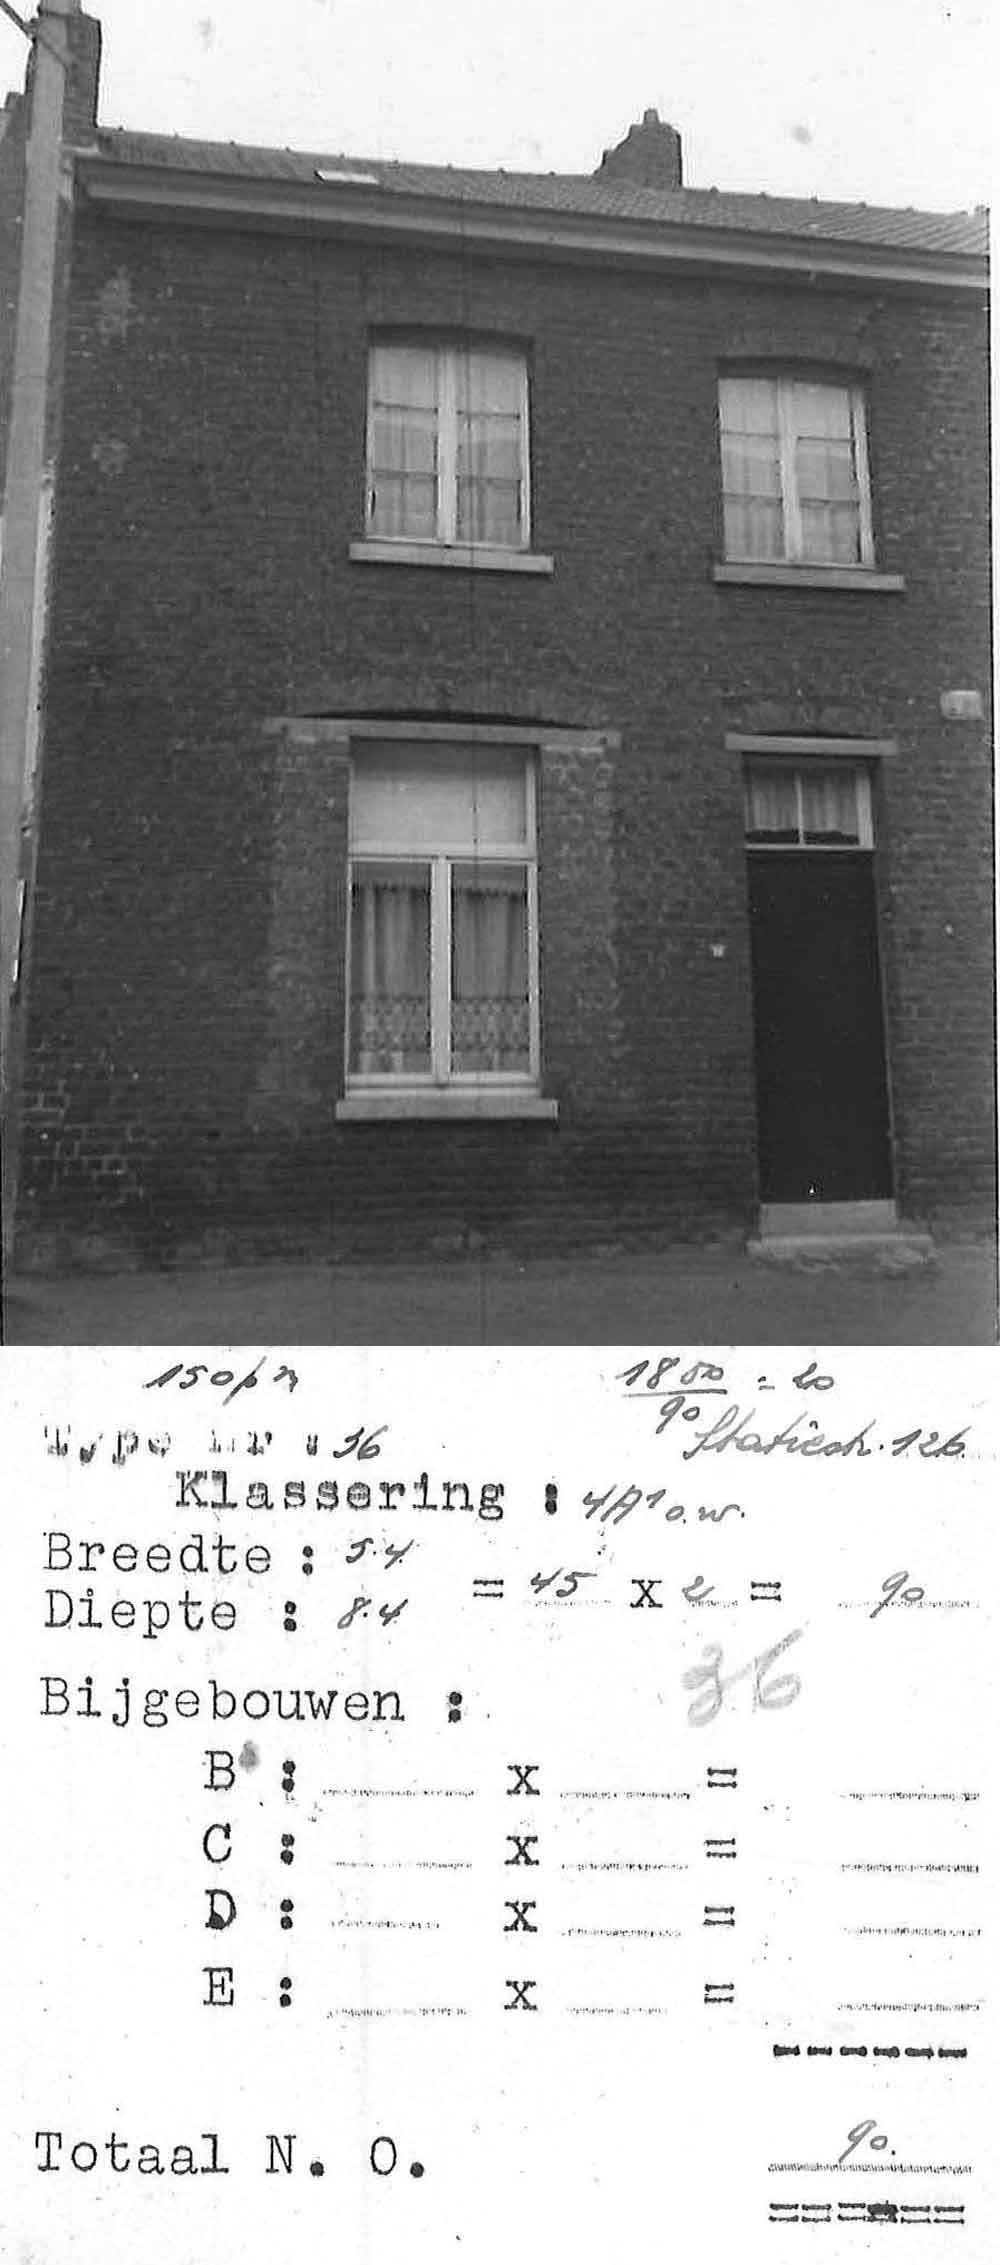 150 p m
1800 = 20
90
Statiestr. 126
Type nr : 36
Klassering : 4A1 o.w.
Breedte : 5.4
= 45 x 2 = 90
Diepte : 8.4
36
Bijgebouwen :
B : x =
C : x =
D : x =
E : x =
Totaal N. O. 90.